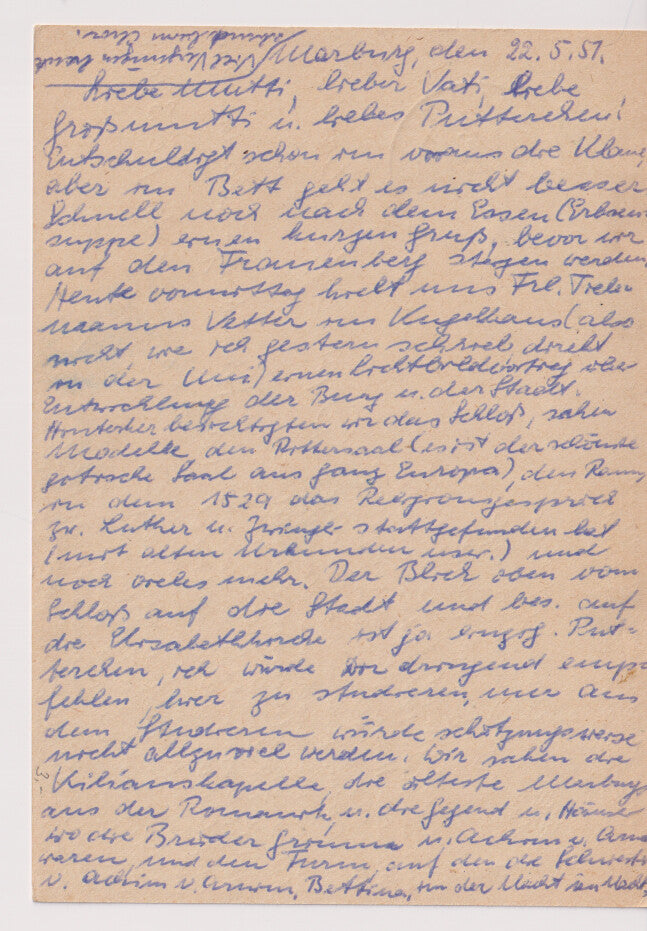 Viel Vergnügen heute
abend beim Chor.
Marburg, den 22.5.51.
Liebe Mutti, lieber Vati, liebe
Großmutti u. liebes Putterchen!
Entschuldigt schon im voraus die Klaue,
aber im Bett geht es nicht besser
Schnell noch nach dem Essen (Erbsen
suppe) einen kurzen Gruß, bevor wir
auf den Frauenberg steigen werden.
Heute vormittag hielt uns Frl.
Vetter im Kugelhaus (also
nicht, wie ich gestern schrieb, direkt
in der Uni) einen Lichtbildvortrag über
Entwicklung der Burg u. der Stadt.
Hinterher besichtigten wir das Schloß, sahen
Modelle, den Rittersaal (es ist der schönste
gotische Saal aus ganz Europa), den Raum,
in dem 1529 das Religionsgespräch
zw. Luther u. Zwingli stattgefunden hat
(mit alten Urkunden usw.) und
noch vieles mehr. Der Blick oben vom
Schloß auf die Stadt und bes. auf
die Elisabethkirche ist ja einzig. Put-
terchen, ich würde Dir dringend emp-
fehlen, hier zu studieren, nur aus
dem Studieren würde schätzungsweise
nicht allzuviel werden. Wir sahen die
Kilianskapelle, die älteste Marburgs
aus der Romanik, u. die Gegend u. Häuser
wo die Brüder Grimm u. Achim v. Arnim
waren, und den Turm, auf den die Schwester
v. Achim v. Arnim, Bettina, in der Nacht